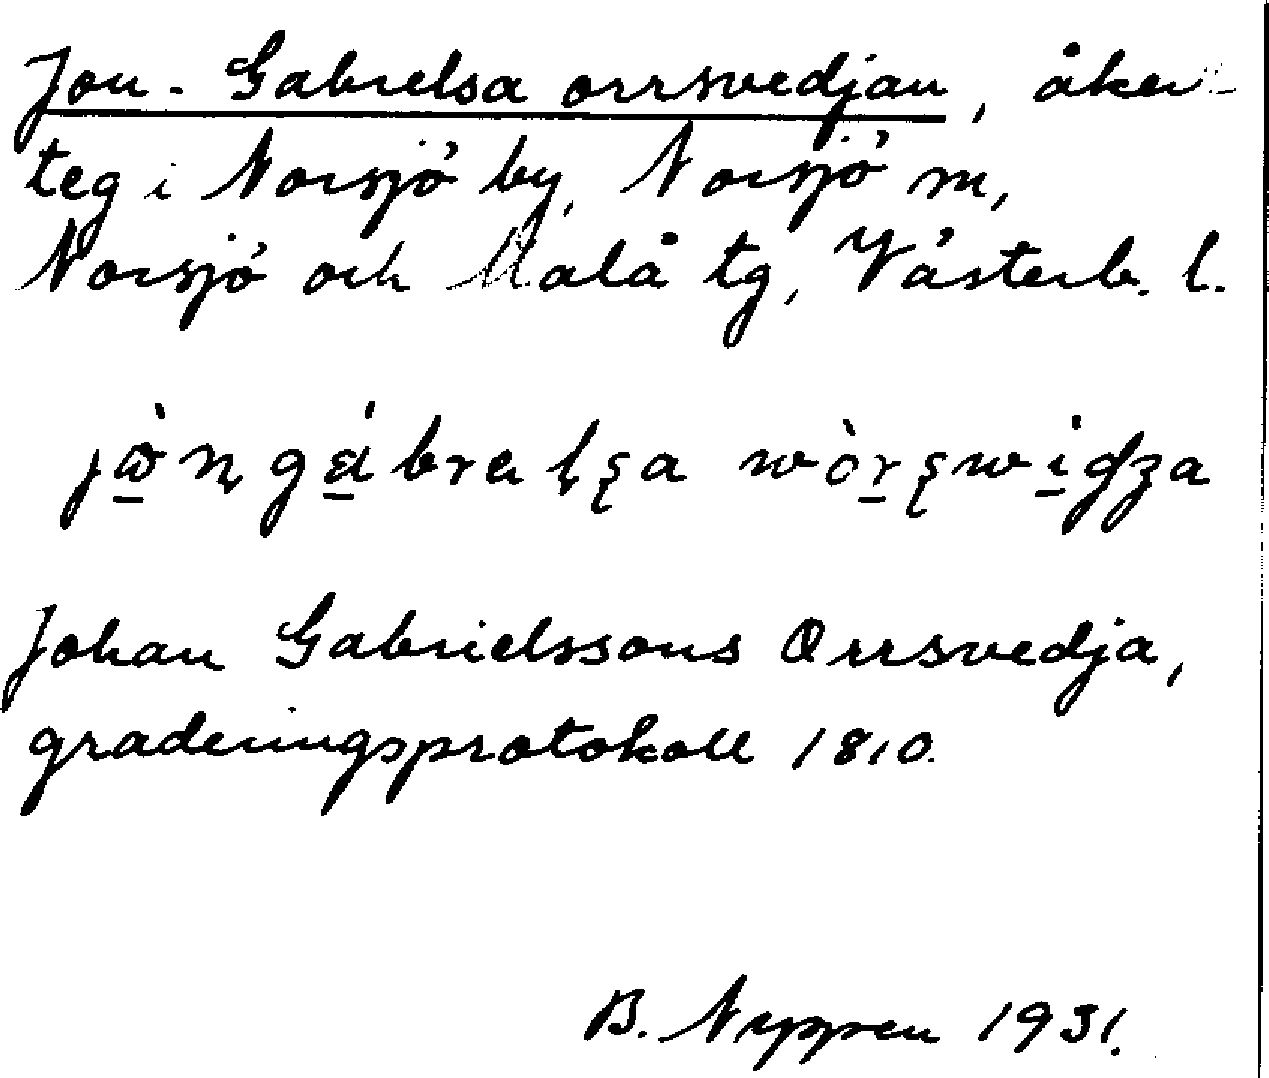 Jon-Gabrielsa orrsvedjan, åker-
teg i Norsjö by, Norsjö sn,
Norsjö och Malå tg, Västerb. l.
Johan Gabrielssons Orrsvedja,
graderingsprotokoll 1810.
B. Nyppen 1931.